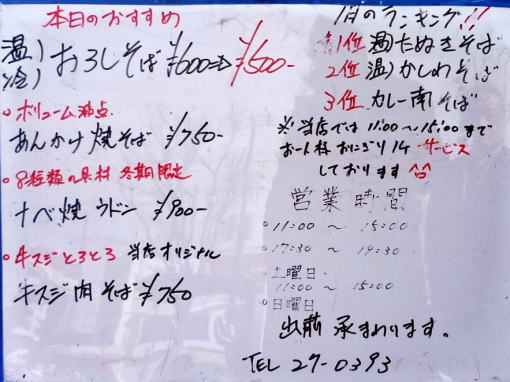 本日のおすすめ
温)
冷) おろしそば ¥600⇒ ¥500-
○ボリューム満点
あんかけ焼そば ¥750-
○8種類の具材 冬期限定
ナベ焼ウドン ¥900-
○牛スジとろとろ 当店オリジナル
牛スジ肉そば ¥750
1月のランキング!!
1位 温)たぬきそば
2位 温)かしわそば
3位 カレー南そば
※当店では11:00〜15:00まで
お一人様おにぎり1ケ サービス
しております ^^
営業時間
○11:00 〜 15:00
○17:30 〜 19:30
○土曜日
11:00 〜 15:00
○日曜日
出前承まわります。
TEL 27-0393